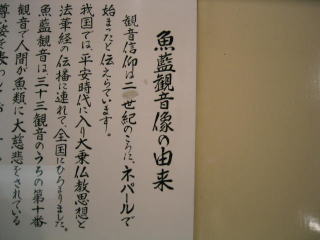 魚藍観音像の由来
観音信仰は二世紀のころに、ネパールで
始まったと伝えられています。
我国では、平安時代に入り大乗仏教思想と
法華経の伝播に連れて、全国にひろまりました。
魚藍観音は、三十三観音のうちの第十番
観音で人間が魚類に大慈悲をされている